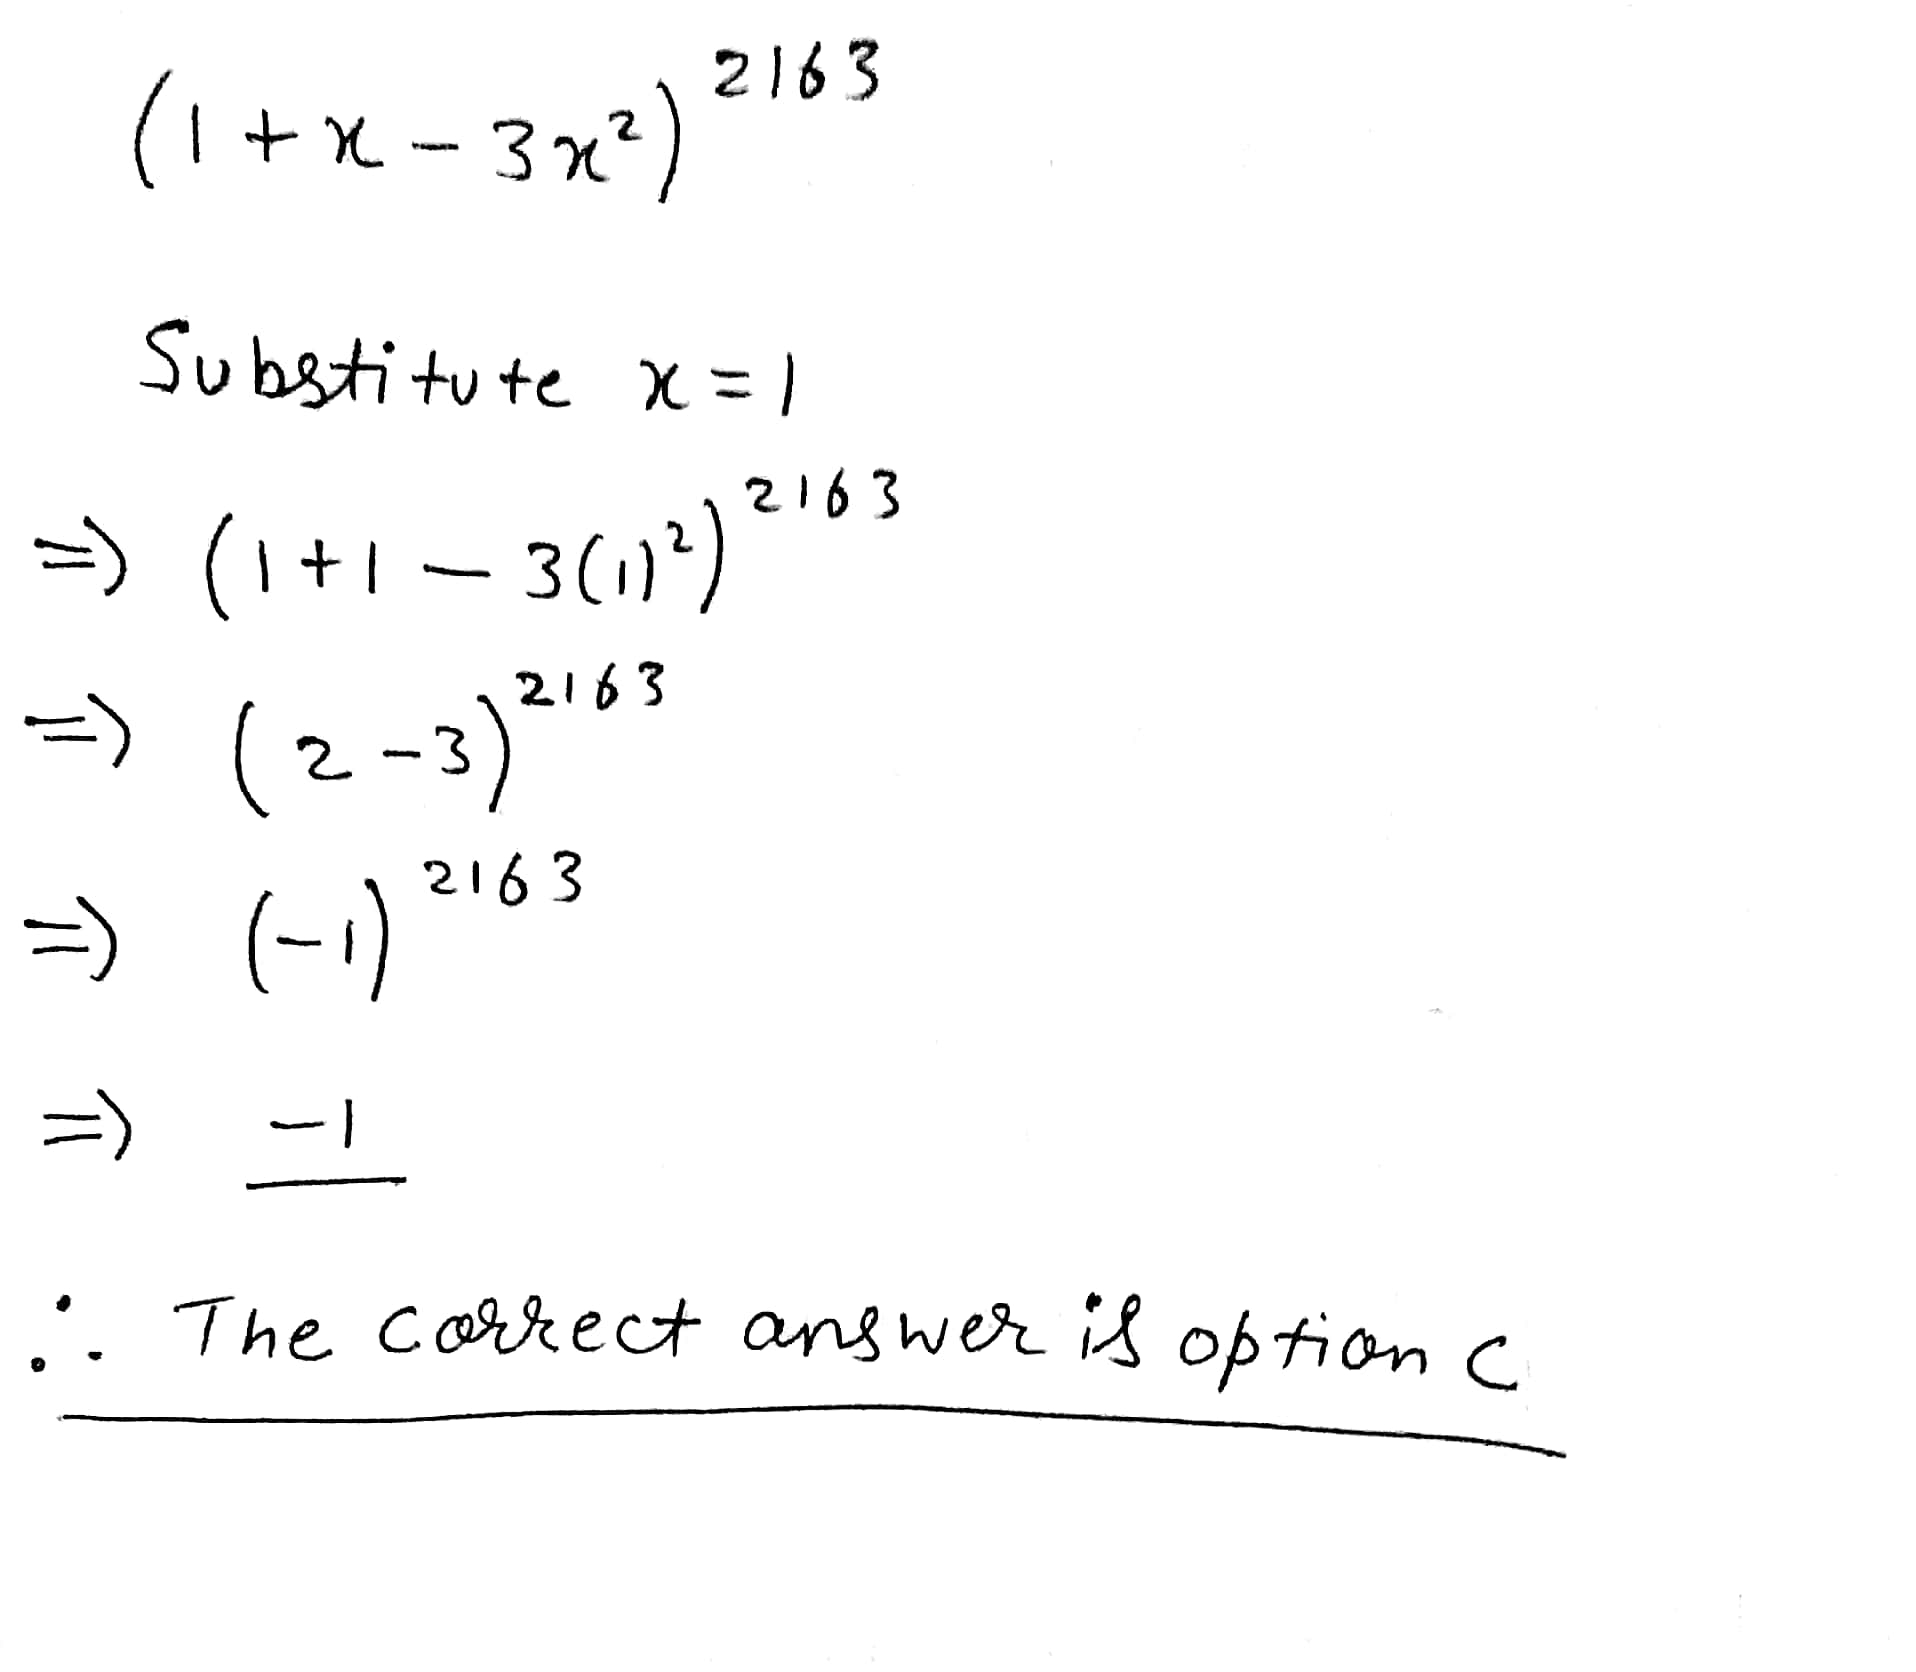 (1 + x - 3x²)²¹⁶³
Substitute x = 1
=> (1 + 1 - 3(1)²)²¹⁶³
=> (2 - 3)²¹⁶³
=> (-1)²¹⁶³
=> -1
∴ The correct answer is option C